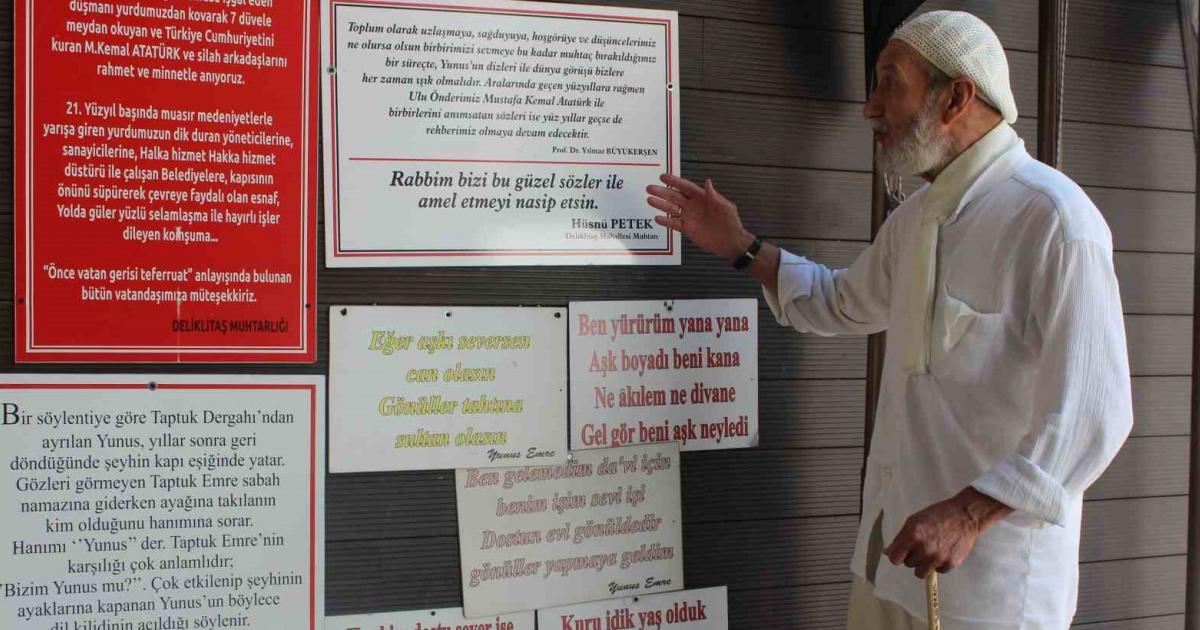 düşmanı yurdumuzdan kovarak 7 düvele
meydan okuyan ve Türkiye Cumhuriyetini
kuran M.Kemal ATATÜRK ve silah arkadaşlarını
rahmet ve minnetle anıyoruz.
21. Yüzyıl başında muasır medeniyetlerle
yarışa giren yurdumuzun dik duran yöneticilerine,
sanayicilerine, Halka hizmet Hakka hizmet
düstürü ile çalışan Belediyelere, kapısının
önünü süpürerek çevreye faydalı olan esnaf,
Yolda güler yüzlü selamlaşma ile hayırlı işler
dileyen komşuma...
“Önce vatan gerisi teferruat” anlayışında bulunan
bütün vatandaşımıza müteşekkiriz.
DELİKLİTAŞ MUHTARLIĞI
Toplum olarak uzlaşmaya, sağduyuya, hoşgörüye ve düşüncelerimiz
ne olursa olsun birbirimizi sevmeye bu kadar muhtaç bırakıldığımız
bir süreçte, Yunus'un dizleri ile dünya görüşü bizlere
her zaman ışık olmalıdır. Aralarında geçen yüzyıllara rağmen
Ulu Önderimiz Mustafa Kemal Atatürk ile
birbirlerini anımsatan sözleri ise yüz yıllar geçse de
rehberimiz olmaya devam edecektir.
Prof. Dr. Yılmaz BÜYÜKERŞEN
Rabbim bizi bu güzel sözler ile
amel etmeyi nasip etsin.
Hüsnü PETEK
Deliklitaş Mahallesi Muhtarı
Bir söylentiye göre Taptuk Dergahı’ndan
ayrılan Yunus, yıllar sonra geri
döndüğünde şeyhin kapı eşiğinde yatar.
Gözleri görmeyen Taptuk Emre sabah
namazına giderken ayağına takılanın
kim olduğunu hanımına sorar.
Hanımı ‘’Yunus’’ der. Taptuk Emre’nin
karşılığı çok anlamlıdır;
’Bizim Yunus mu?’’. Çok etkilenip şeyhinin
ayaklarına kapanan Yunus’un böylece
dil kilidinin açıldığı söylenir.
Eğer aşkı seversen
can olasın
Gönüller tahtına
sultan olasın
Yunus Emre
Ben yürürüm yana yana
Aşk boyadı beni kana
Ne âkılem ne divane
Gel gör beni aşk neyledi
Ben gelemedim da'vi için
benim işim sevi işi
Dostun evi gönüldedir
gönüller yapmaya geldim
Yunus Emre
dostu sever ise
Kuru idik yaş olduk